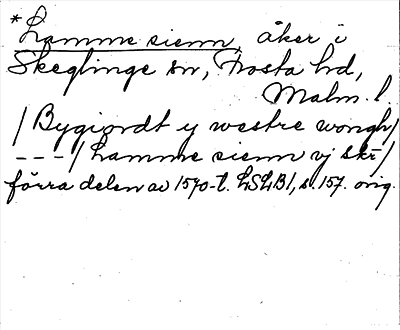 *hamme sienn, åker i
Skeglinge sn, Frosta hd,
Malm. l.
/Bygiordt y westre wongh/
---/hamme sienn vj skr/
förra delen av 1570-t. LSLB1, s. 157. orig.